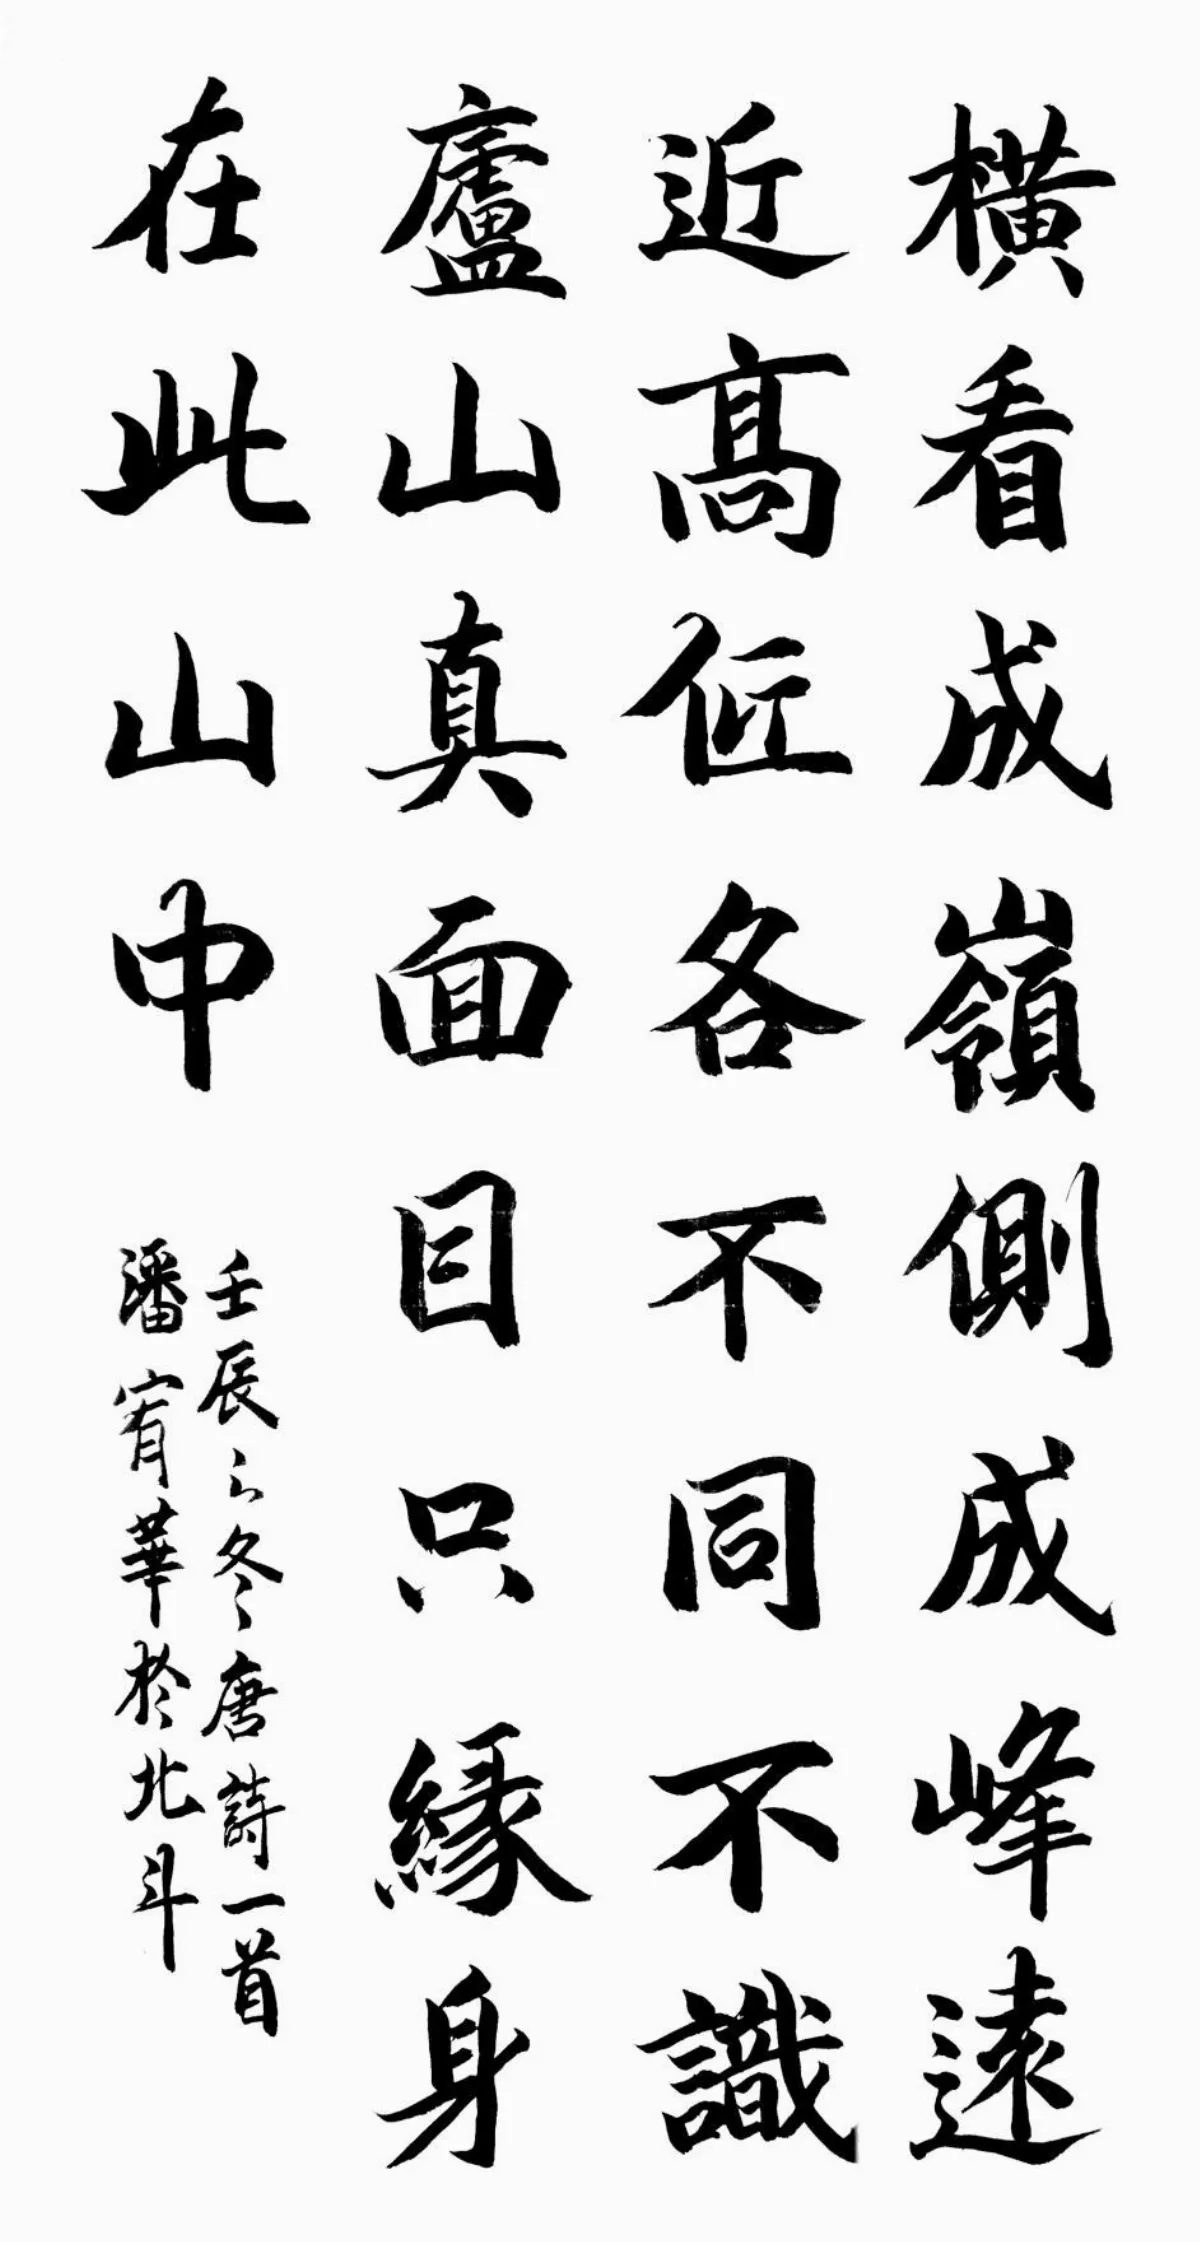 橫看成嶺側成峰遠
近高低各不同不識
廬山真面目只緣身
在此山中
壬辰之冬唐詩一首
潘宥華於北斗